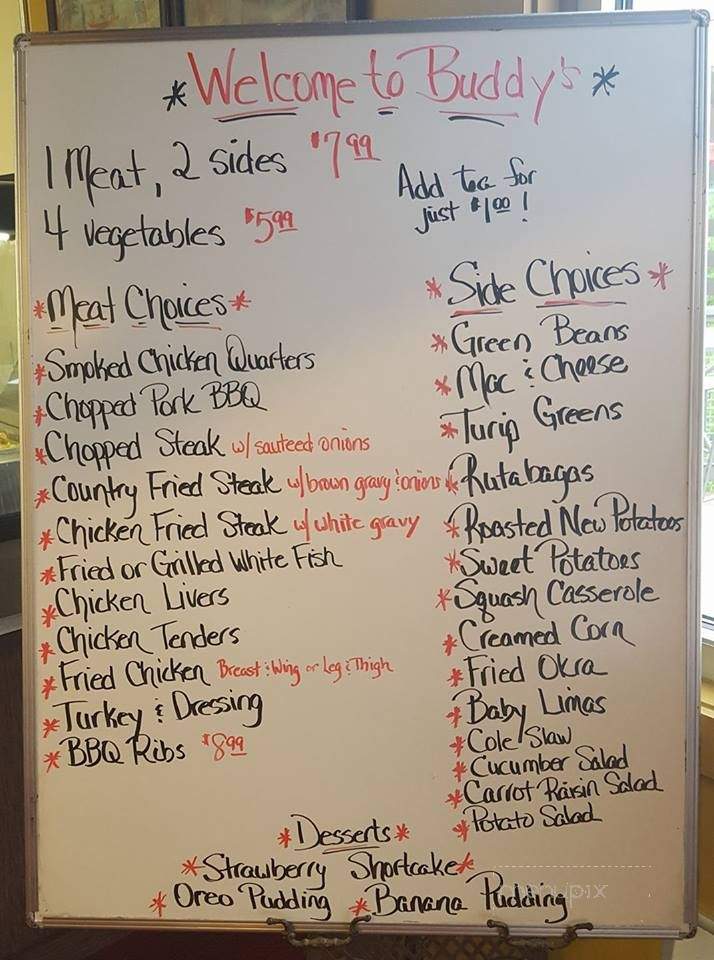 *Welcome to Buddy's*
1 Meat, 2 sides $7.99
4 vegetables $5.99
Add tea for
just $1.00!
*Meat Choices*
*Smoked Chicken Quarters
*Chopped Pork BBQ
*Chopped Steak w/ sauteed onions
*Country Fried Steak w/ brown gravy & onions
*Chicken Fried Steak w/ white gravy
*Fried or Grilled White Fish
*Chicken Livers
*Chicken Tenders
*Fried Chicken Breast & Wing or Leg & Thigh
*Turkey & Dressing
*BBQ Ribs $8.99
*Side Choices*
*Green Beans
*Mac & Cheese
*Turip Greens
*Rutabagas
*Roasted New Potatoes
*Sweet Potatoes
*Squash Casserole
*Creamed Corn
*Fried Okra
*Baby Limas
*Cole Slaw
*Cucumber Salad
*Carrot Raisin Salad
*Potato Salad
*Desserts*
*Strawberry Shortcake*
*Oreo Pudding *Banana Pudding